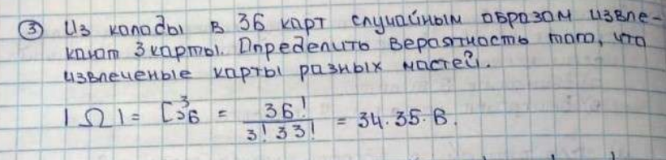 ③ Из колоды в 36 карт случайным образом извле-
кают 3 карты. Определить вероятность того, что
извлеченые карты разных мастей.
|Ω| = C³₃₆ = 36! / 3! 33! = 34·35·6.